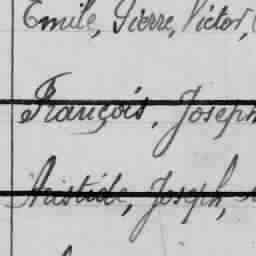 Emile, Pierre, Victor,
François, Joseph
Aristide, Joseph,